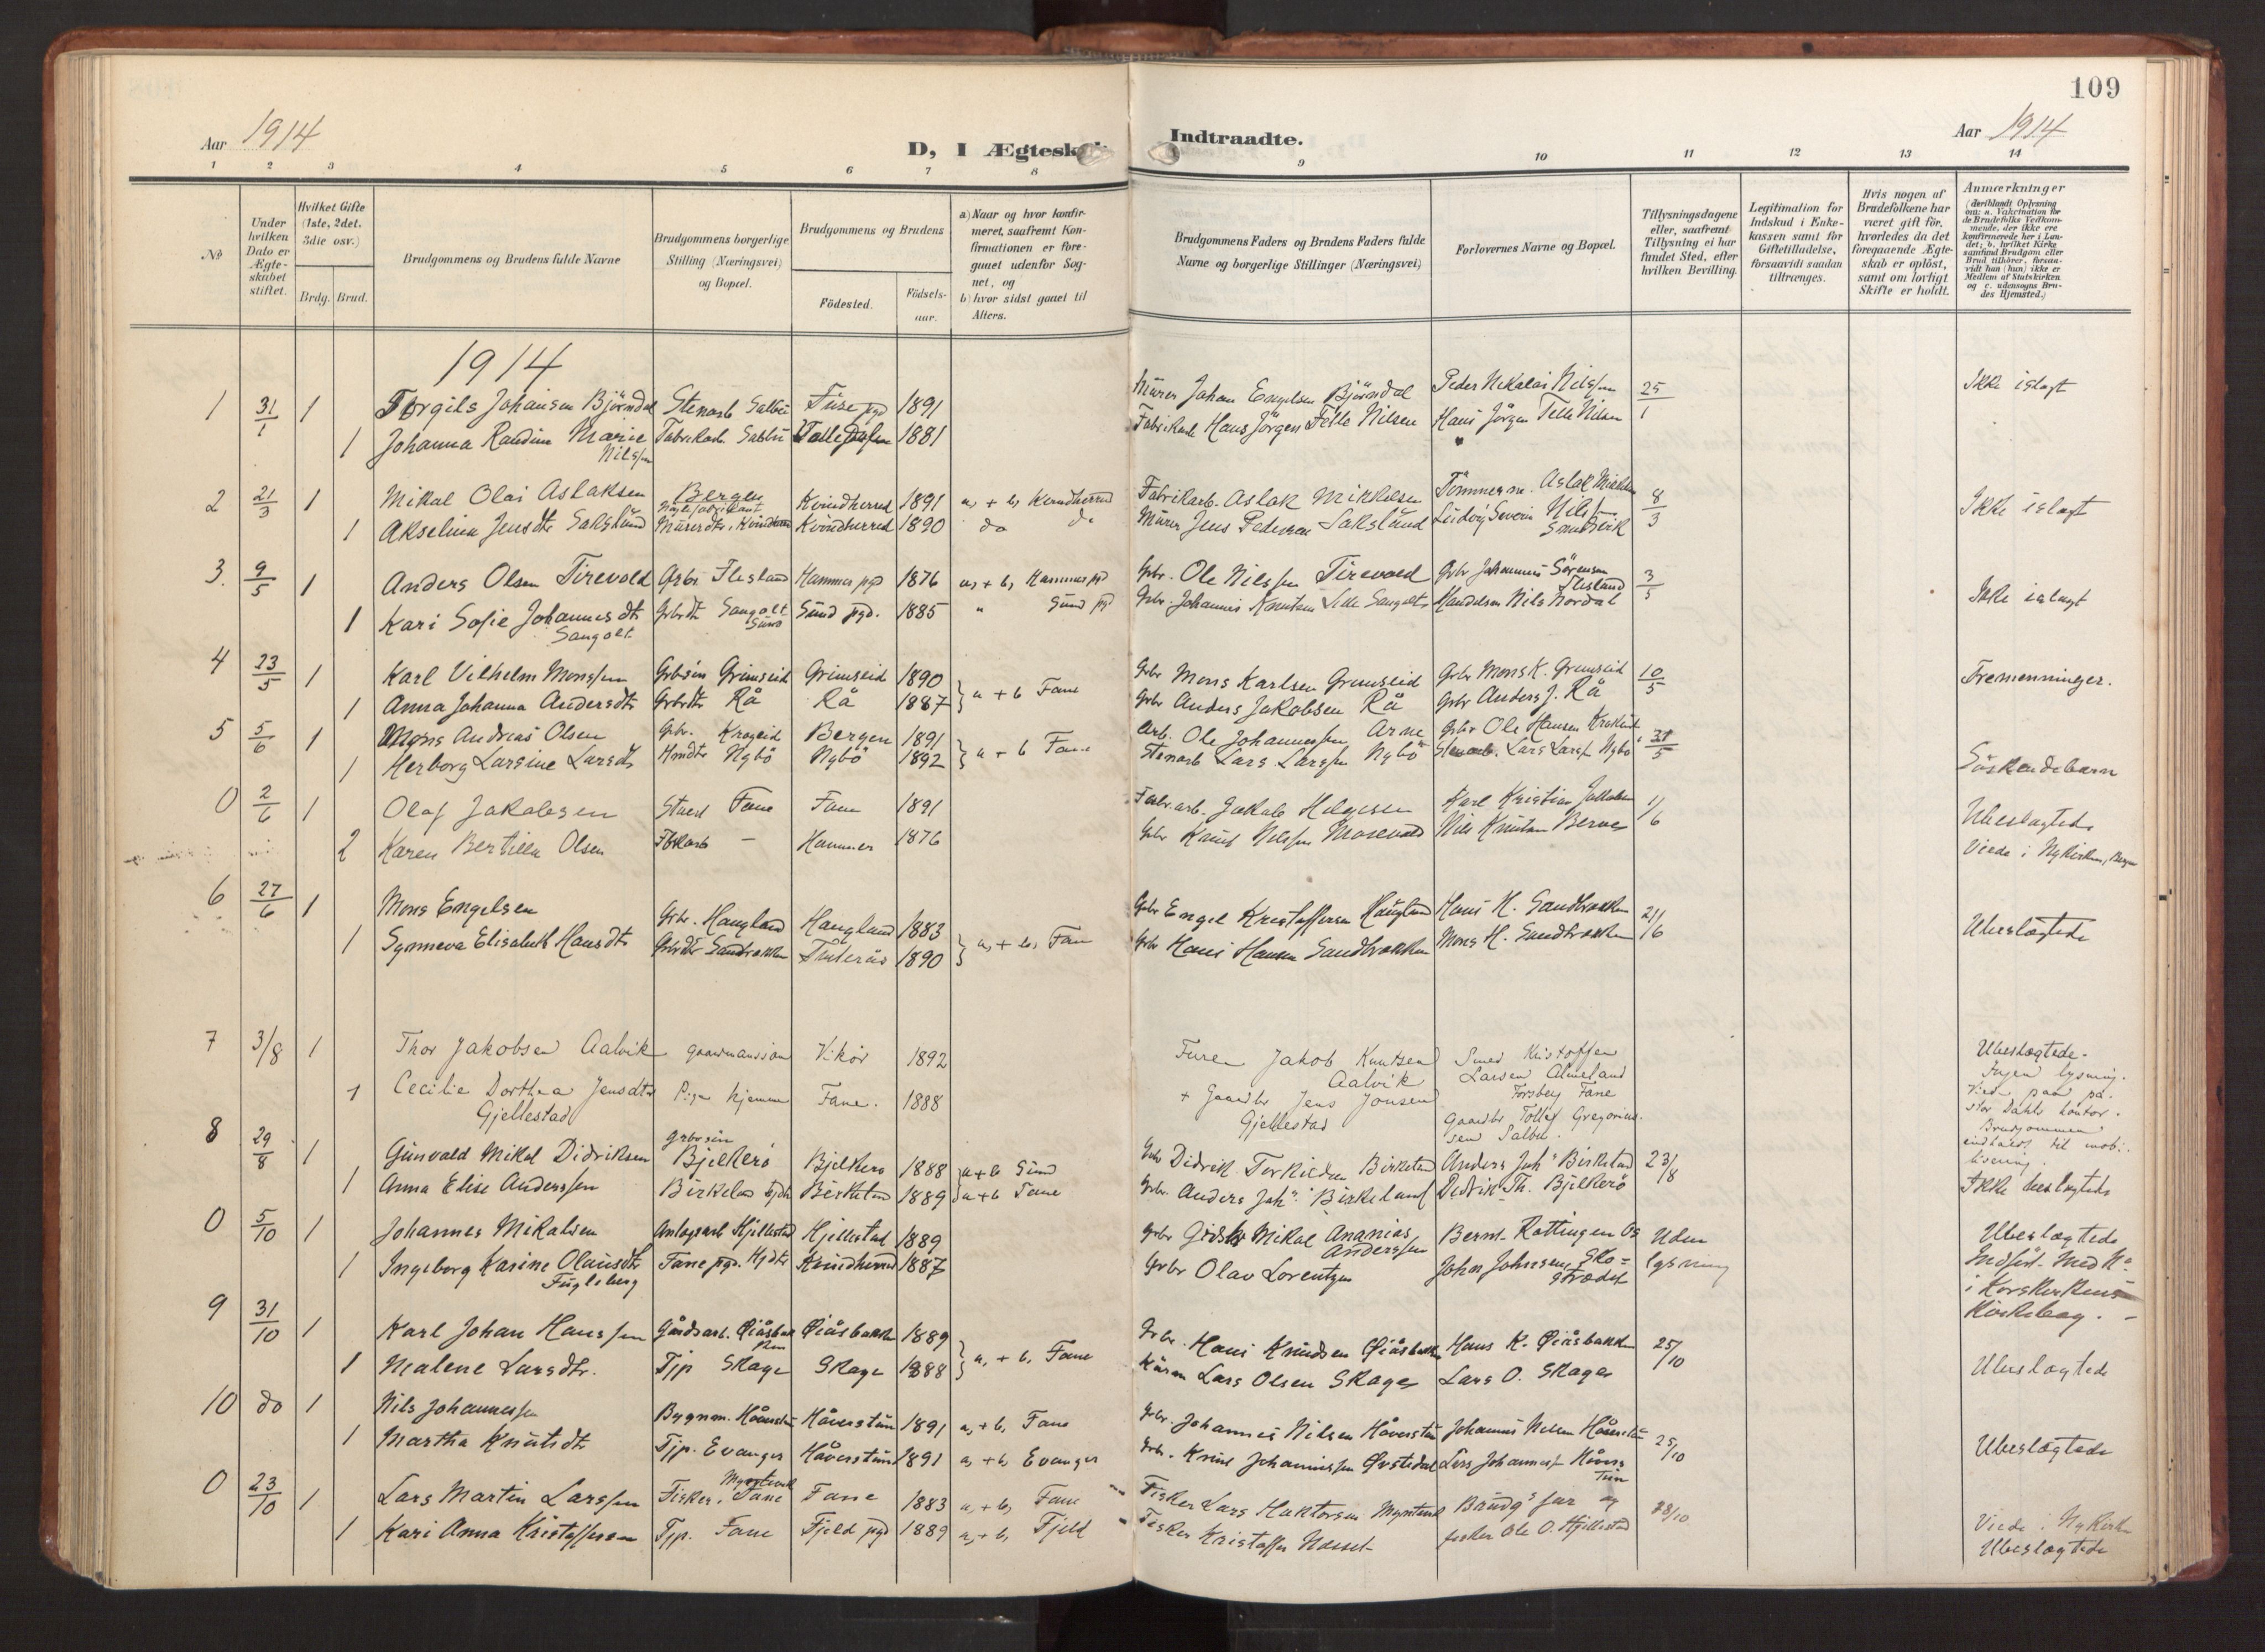 109
Aar 1914
D, I Ægtesk
Indtraadte.
Aar 1914
1 2 3 4 5 6 7 8 9 10 11 12 13 14
No
Under hvilken Dato er Ægteskabet stiftet.
Hvilket Gifte (1ste, 2det, 3die osv.)
Brdg. Brud.
Brudgommens og Brudens fulde Navne
Brudgommens borgerlige Stilling (Næringsvei) og Bopæl.
Brudgommens og Brudens
Födested.
Födselsaar.
a) Naar og hvor konfirmeret, saafremt Konfirmationen er foregaaet udenfor Sognet, og
b) hvor sidst gaaet til Alters.
Brudgommens Faders og Brudens Faders fulde Navne og borgerlige Stillinger (Næringsvei)
Forlovernes Navne og Bopæl.
Tillysningsdagene eller, saafremt Tillysning ei har fundet Sted, efter hvilken Bevilling.
Legitimation for Indskud i Enkekassen samt for Giftetilladelse, forsaavidt saadan tiltrænges.
Hvis nogen af Brudefolkene har været gift för, hvorledes da det foregaaende Ægteskab er oplöst, samt om lovligt Skifte er holdt.
Anmærkninger (deriblandt Oplysning om: a. Vakcination for de Brudefolks Vedkommende, der ikke ere konfirmerede her i Landet; b. hvilket Kirkesamfund Brudgom eller Brud tilhörer, forsaavidt han (hun) ikke er Medlem af Statskirken og c. udensogns Brudes Hjemsted.)
1914
1 31/1 1 Torgils Johansen Björndal Stenarb Salbu Fuse pgd 1891 Murer Johan Engelsen Björndal Peder Nikolai Nilssen 25/1 Ikke i slagt
1 Johanna Randine Marie Nilssen Fabrikarb. Salbu 1881 Fabrikarb Hans Jörgen Telle Nilsen Hans Jörgen Telle Nilsen
2 21/3 1 Mikal Olai Aslaksen Bergen Kvindherred 1891 a, + b, Kvindherred Fabrikarb. Aslak Mikkelsen Tömmerm. Aslak 8/3 Ikke i slagt
1 Akselina Jensdtr Sakslund Murerdtr, Kvindherred Kvindherred 1890 do do Murer Jens Pedersen Sakslund Ludvig Severin Nils Sandvik
3. 9/5 1 Anders Olsen Tirevold Grbr Flesland Hammer pgd 1876 a, + b, Hammer pgd Grbr. Ole Nilssen Tirevold Grbr Johannes Sörensen Flesland 3/5 Ikke i slagt
1 Kari Sofie Johannesdtr Sangolt Grbrdtr Sangolt Sund Sund pgd. 1885 " Sund pgd Grbr. Johannes Knutsen Lille Sangolt Handelsm Nils Nordal
4 23/5 1 Karl Vilhelm Monssen Grbsön Grimseid Grimseid 1890 } a + b Fane Grbr Mons Karlsen Grimseid Grbr Mons K. Grimseid 10/5 Tremenninger.
1 Anna Johanna Andersdtr Grbrdtr Rå Rå 1887 Grbr Anders Jakobsen Rå Grbr Anders J. Rå
5 5/6 1 Mons Andreas Olsen Grbr. Krogeid Bergen 1891 } a + b Fane Arb. Ole Johannessen Arne Grbr Ole Hansen 31/5 Söskendebarn
1 Herborg Larsine Larsdtr Hmdtr Nybö Nybö 1892 Stenarb Lars Larssen Nybö Stenarb. Lars Larss. Nybö
0 2/6 1 Olaf Jakobsen Fane Fane 1891 Fabr.arb. Jakob Helgesen Karl Kristian Jakobsen 1/6 Ubeslagtede
2 Karen Bertilla Olsen — Hammer 1876 Grbr Knut Nilssen Mosevold Nils Knutsen Berve Viede i Nykirken, Bergen
6 27/6 1 Mons Engelsen Grbr. Haugland Haugland 1883 } a, + b, Fane Grbr Engel Kristoffersen Haugland Hans H. Sandbrekken 21/6 Ubeslagtede
1 Synneva Elisabeth Hansdtr Grbrdtr Sandbrekken 1890 Grbr Hans Hansen Sandbrekken Mons H. Sandbrekken
7 3/8 1 Thor Jakobsen Aalvik gaardmandssön Vikör 1892 Furer Jakob Knutsen Aalvik Smed Kristoffer Larsen Almeland Forsberg Fane Ubeslagtede.
1 Cecilie Dorthea Jensdtr Gjellestad Pige hjemme Fane. 1888 + Gaardbr Jens Jonsen Gjellestad Gaardbr Tollef Gregoriussen Salbu. Ingen lysning. Viet paa pastor Dahls kontor. Brudgommen indkaldt til mobilisering.
8 29/8 1 Gunvald Mikal Didriksen Grbrsön Bjelkerö Bjelkerö 1888 a + b Sund Grbr Didrik Terkildsen Birkeland Anders Joh. Birkeland 23/8 Ikke beslagtede
1 Anna Elise Anderssen Birkeland Birkeland 1889 a + b Fane Grbr. Anders Joh. Birkeland Didrik Th. Bjelkerö
0 5/10 1 Johannes Mikalsen Anlægsarb Hjellestad Hjellestad 1889 Grbr Mikal Ananias Anderssen Bernt Rottingen Os Uden lysning Ubeslagtede
1 Ingeborg Karine Olausdtr Fugleberg Fane pgd. Kvindherred 1887 Grbr Olav Lorentzen Johan Johnsen, Skostrædet Indfört med No i Korskirkens Kirkebog. -
9 31/10 1 Karl Johan Hanssen Gårdsarb. Øiåsbakken Øiåsbakken 1889 } a, + b, Fane Grbr. Hans Knudsen Øiåsbakken Hans K. Øiåsbakken 25/10 Ubeslagtede
1 Malene Larsdtr. Tjp Skage Skage 1888 Lars Olsen Skage Lars O. Skage
10 do 1 Nils Johannessen Bygnm. Håverstun Håverstun 1891 a, + b, Fane Grbr. Johannes Nilsen Håverstun Johannes Nilsen Håverstun 25/10 Ubeslagtede
1 Martha Knutsdtr Tjp. Evanger Håverstun 1891 a, + b, Evanger Grbr. Knut Johannessen Øvstedal Lars Johanness Håverstun
0 23/10 1 Lars Martin Larssen Fisker, Fane Fane 1883 a, + b, Fane Fisker Lars Haktorsen Brudgs far og Viede i Nykirken
1 Kari Anna Kristoffersen Tjp. Fane Fjeld pgd 1889 a, + b, Fjeld Fisker Kristoffer Nesset fisker Ole O. Hjellestad Ubeslagtede